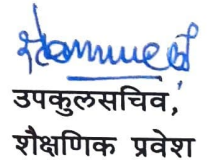 उपकुलसचिव,
शैक्षणिक प्रवेश